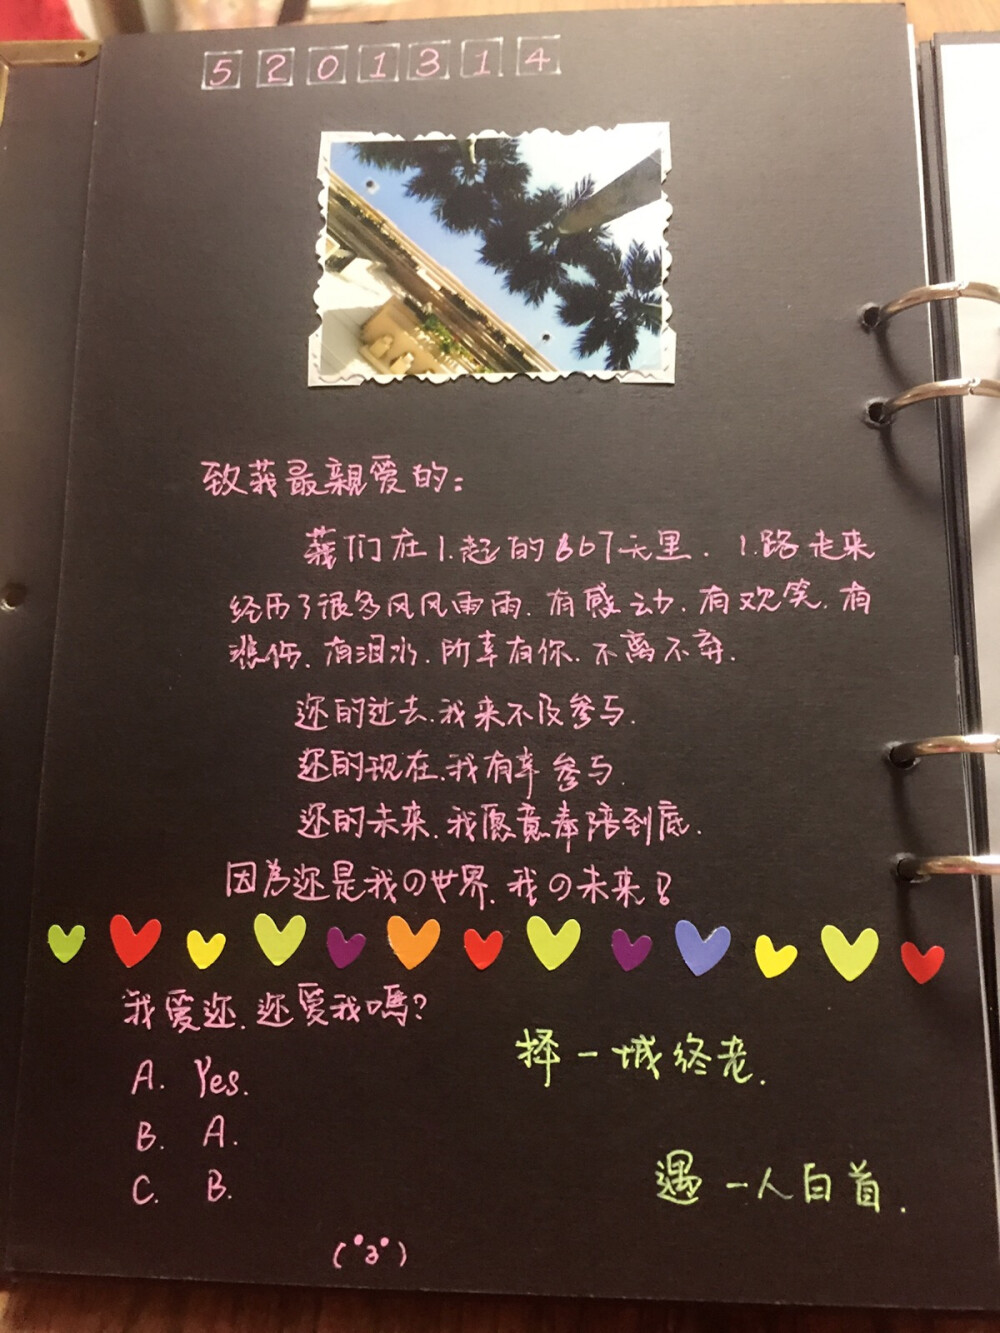 5201314
致莪最親爱的:
莪们在1.起的867天里.1.路走来
经历了很多风风雨雨.有感动.有欢笑.有
悲伤.有泪水.所幸有你.不离不弃.
迩的过去.我来不及参与.
迩的现在.我有幸参与.
迩的未来.我愿意奉陪到底.
因為迩是我の世界.我の未来!
我爱迩.迩爱我嗎?
A. Yes.
B. A.
C. B.
择一城终老.
遇一人白首.
(°3°)